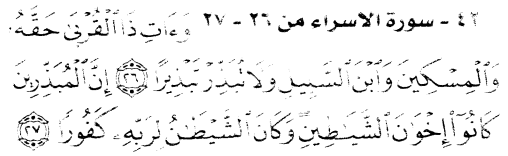 ٤٢ - سورة الاسراء من ٢٦ - ٢٧ وَءَاتِ ذَا ٱلْقُرْبَىٰ حَقَّهُۥ
وَٱلْمِسْكِينَ وَٱبْنَ ٱلسَّبِيلِ وَلَا تُبَذِّرْ تَبْذِيرًا ٢٦ إِنَّ ٱلْمُبَذِّرِينَ
كَانُوٓا۟ إِخْوَٰنَ ٱلشَّيَـٰطِينِ وَكَانَ ٱلشَّيْطَـٰنُ لِرَبِّهِۦ كَفُورًا ٢٧